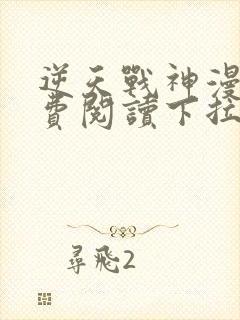 逆天戰神漫
費閱讀下拉
尋飛2